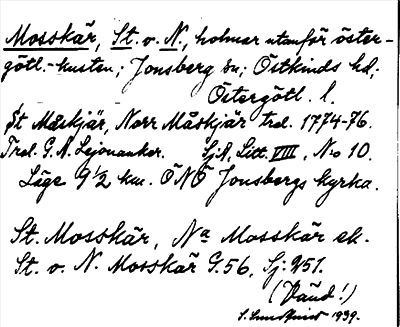 Mosskär, St. o. N., holmar utanför öster-
götl.-kusten; Jonsberg sn; Östkinds hd;
Östergötl. l.
St Måskjär, Norr Måskjär trol. 1774-76.
Trol. G. A. Lejonanker. SjA, Litt. VIII, No 10.
Läge 9 1/2 km. ÖNÖ Jonsbergs kyrka.
St. Mosskär, Na Mosskär ek.
St. o. N. Mosskär G. 56, Sj. 251.
(Vänd!)
1939.